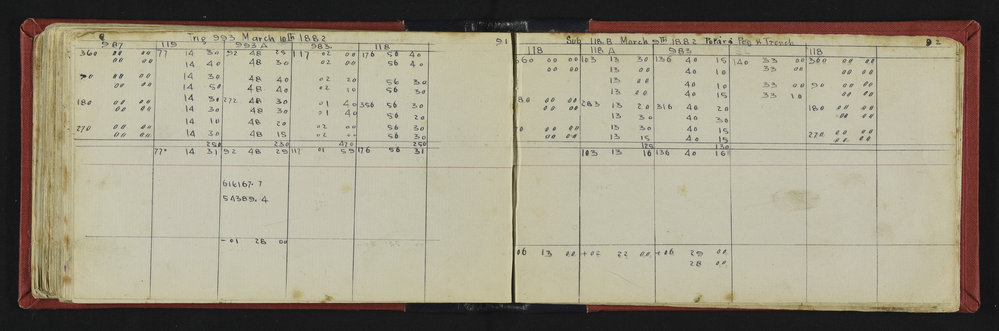 Trig 993 March 10th 1882 91
987 119 993 A 983 118
360 00 00 77 14 30 92 48 25 117 02 00 176 56 40
00 00 14 40 48 30 02 00 56 40
90 00 00 14 30 48 40 02 20 56 30
00 00 14 50 48 40 02 10 56 30
180 00 00 14 30 272 48 30 01 40 356 56 30
00 00 14 30 48 30 01 40 56 20
14 10 48 20 02 00 56 30
270 00 00 14 30 48 15 02 00 56 30
250 230 470 250
77° 14 31 92 48 29 117 01 59 176 56 31
616167.7
54389.4
- 01 28 00
Sub 118 B March 9th 1882 Peg & Trench 92
118 118 A 983 118
360 00 00 103 13 30 136 40 15 140 33 00 360 00 00
00 00 13 00 40 10 33 00 00 00
13 00 40 10 33 00 90 00 00
13 00 40 15 33 10 00 00
180 00 00 283 13 20 316 40 20 180 00 00
00 00 13 30 40 30 00 00
270 00 00 13 30 40 15 270 00 00
00 00 13 15 40 15 00 00
125 130
103 13 16 136 40 16
06 13 00 +06 22 00 +06 29 00
28 00